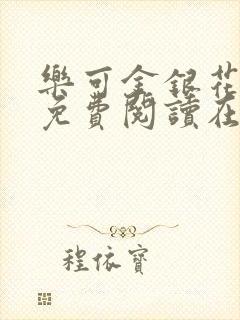 樂可金銀花
免費閱讀在
程依寶